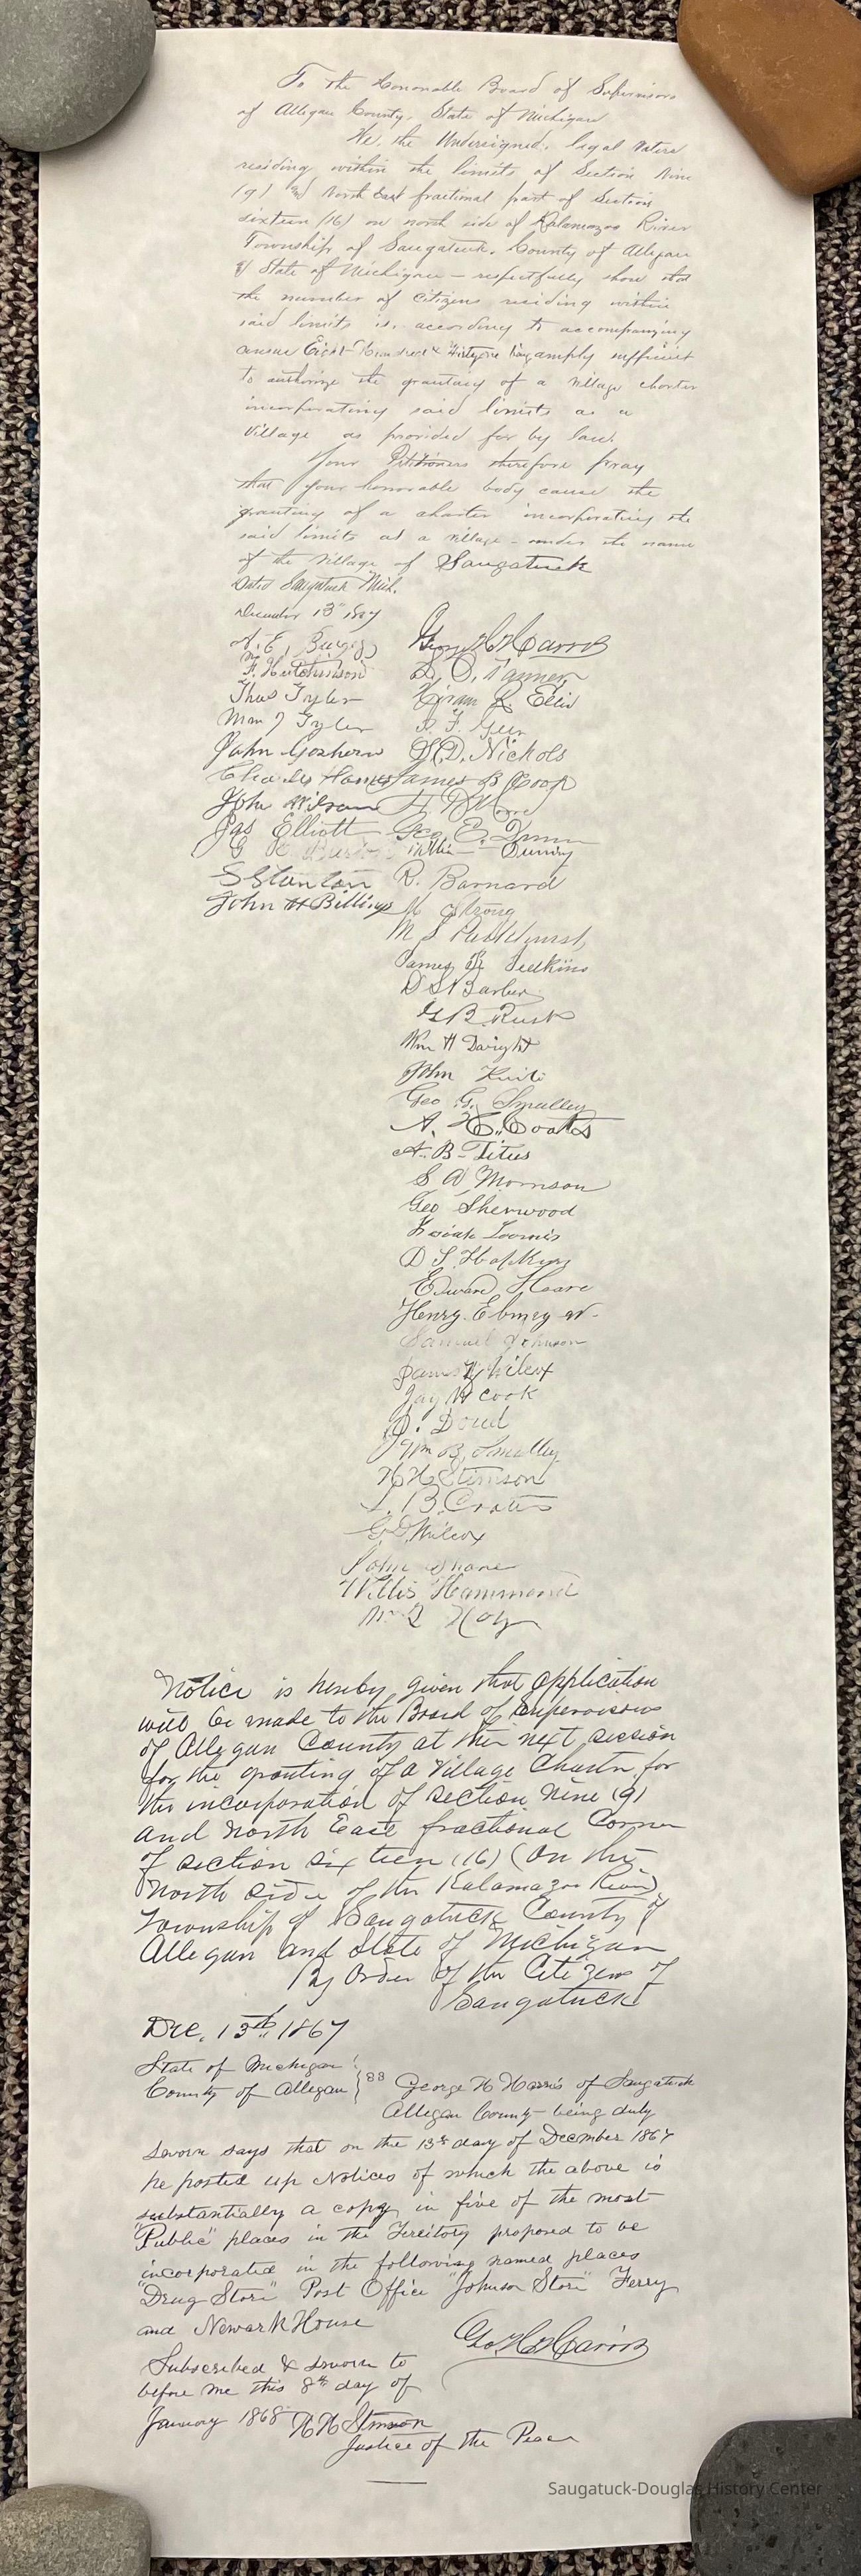 To the Honorable Board of Supervisors
of Allegan County, State of Michigan
We, the Undersigned, legal Voters
residing within the limits of Section Nine
(9) and North East fractional part of Section
sixteen (16) on north side of Kalamazoo River
Township of Saugatuck, County of Allegan
& State of Michigan – respectfully show that
the number of citizens residing within
said limits is, according to accompanying
census Eight Hundred & being amply sufficient
to authorize the granting of a village charter
incorporating said limits as a
Village as provided for by law.
Your Petitioners therefore pray
that your honorable body cause the
granting of a charter incorporating the
said limits as a village – under the name
of the village of Saugatuck
Dated Saugatuck Mich.
December 13th 1867
George H Harris
F. Hutchinson
Thos Tyler Hiram R. Ellis
Wm J Tyler
John Goshorn S. D. Nichols
James B Coop
John Wilson
Jas Elliott Geo. E. Dunn
S Stanton R. Barnard
John H Billings Strong
M S Parkhurst
James Judkins
D S Barber
G B Rusk
Wm H Dwight
John
Geo G. Smalley
A. H. Coats
A. B. Titus
S A Morrison
Geo Sherwood
Josiah Loomis
D S Hopkins
Edward Hoare
Henry
Samuel Johnson
James Wilcox
Jay W Cook
J. Doud
Wm B. Smalley
H H Stimson
L. B. Coates
G D Wilcox
John Shane
Willis Hammond
Notice is hereby given that application
will be made to the Board of Supervisors
of Allegan County at their next session
for the granting of a Village Charter for
the incorporation of Section Nine (9)
and North East fractional Corner
of section sixteen (16) (on the
North side of the Kalamazoo River)
Township of Saugatuck County of
Allegan and State of Michigan
By Order of the Citizens of
Saugatuck
Dec. 13th, 1867
State of Michigan
County of Allegan } ss George H Harris of Saugatuck
Allegan County – being duly
sworn says that on the 13th day of December 1867
he posted up Notices of which the above is
substantially a copy in five of the most
"Public" places in the Territory proposed to be
incorporated in the following named places
"Drug Store" Post Office "Johnson Store" Ferry
and Newark House
Geo H Harris
Subscribed & sworn to
before me this 8th day of
January 1868 H H Stimson
Justice of the Peace
Saugatuck-Douglas History Center